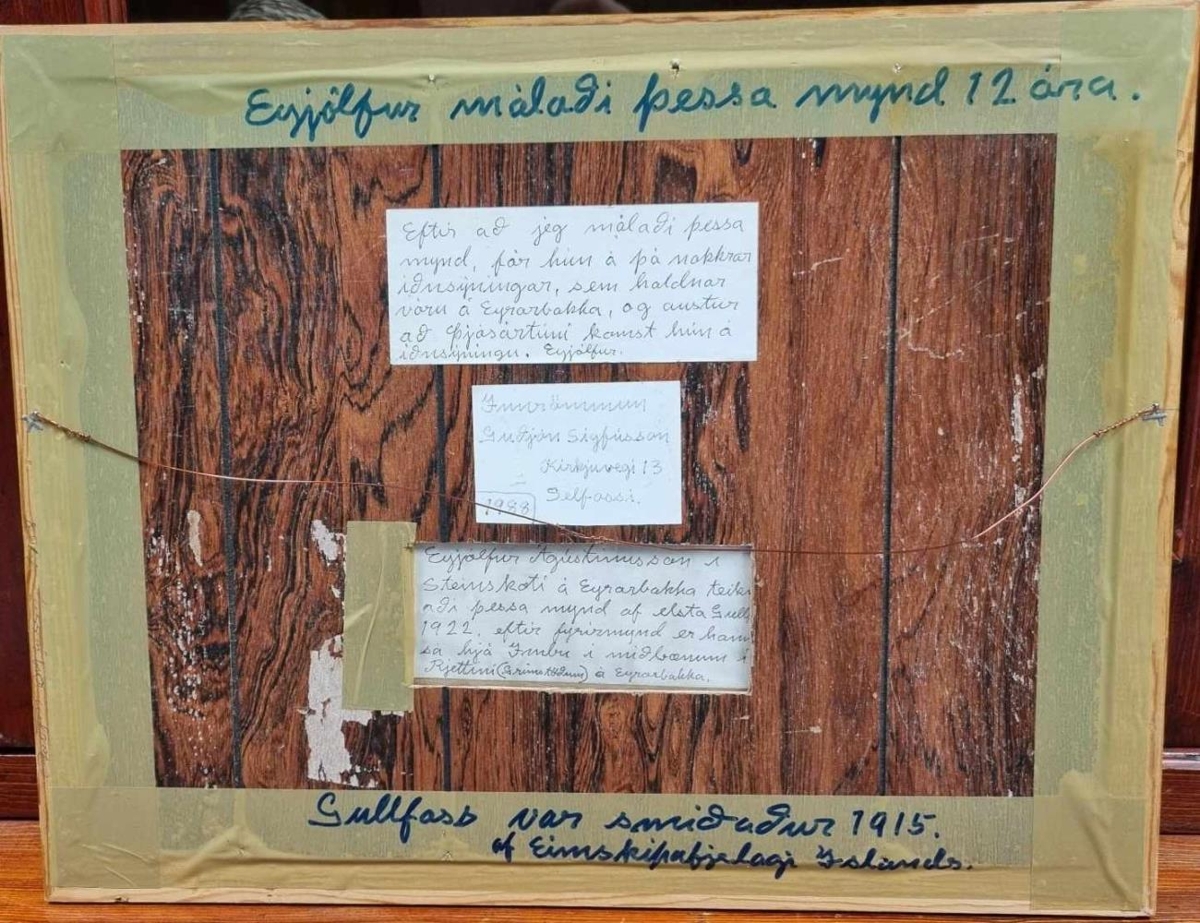 Eyjólfur málaði þessa mynd 12 ára.
Eftir að jeg málaði þessa
mynd, fór hún á þá nokkrar
iðnsýningar, sem haldnar
vóru á Eyrarbakka, og austur
að Þjósártúni komst hún á
iðnsýningu. Eyjólfur.
Innrömmun
Guðjón Sigfússon
Kirkjuvegi 13
Selfossi.
1988
Eyjólfur Ágústínusson í
Steinskoti á Eyrarbakka teikn
aði þessa mynd af elsta Gullf
1922, eftir fyrirmynd er hann
sá hjá Imbu í miðbænum í
Rjettini (Grímstöðum) á Eyrarbakka.
Gullfoss var smiðaður 1915.
af Eimskipafjelagi Islands.